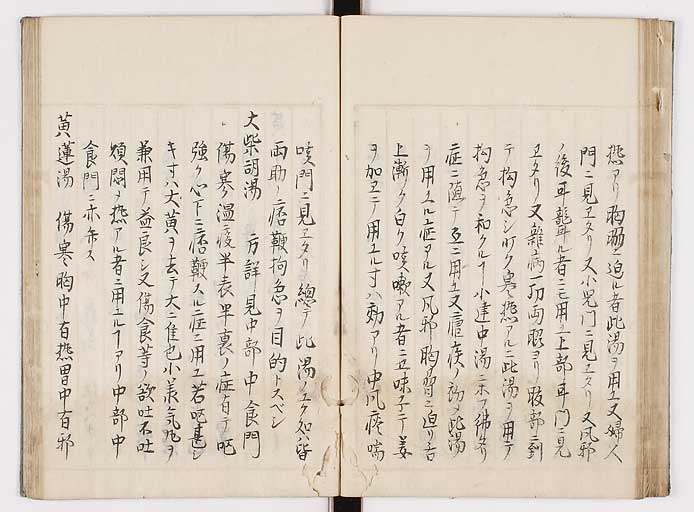 熱アリ胸膈ニ迫ル者此湯ヲ用ユ又婦人
門ニ見エタリ又小児門ニ見エタリ又風邪
ノ後耳聾スル者ニモ用ユ上部耳門ニ見
エタリ又雑病一切両脇ヨリ肢部ニ到
テ拘急シ寒熱アルニ此湯ヲ用テ
拘急ヲ和クル小建中湯ニ
症ニ随テ互ニ用ユ又瘧疾ノ初メ此湯
ヲ用スル症アル又風邪胸脇ニ迫リ舌
上漸ク白ク咳嗽アル者ニ五味子テ姜
ヲ加エテ用ユル寸ハ効アリ中風痰喘
咳門ニ見エタリ總テ此湯ノユク処ハ皆
両肋ノ痞鞕拘急ヲ目的トスベシ
大柴胡湯 方詳見中部 中食門
傷寒温疫半表半裏ノ症有テ嘔
強ク心下ニ痞鞕スル症ニ用ユ若嘔甚シ
キ寸ハ大黄ヲ去テ大ニ佳也小承気湯ヲ
兼用テ益良シ又傷食等ノ欲吐不吐
煩悶メ熱アル者ニ用ユルアリ中部中
食門ニ示ス
黄蓮湯 傷寒胸中有熱胃中有邪